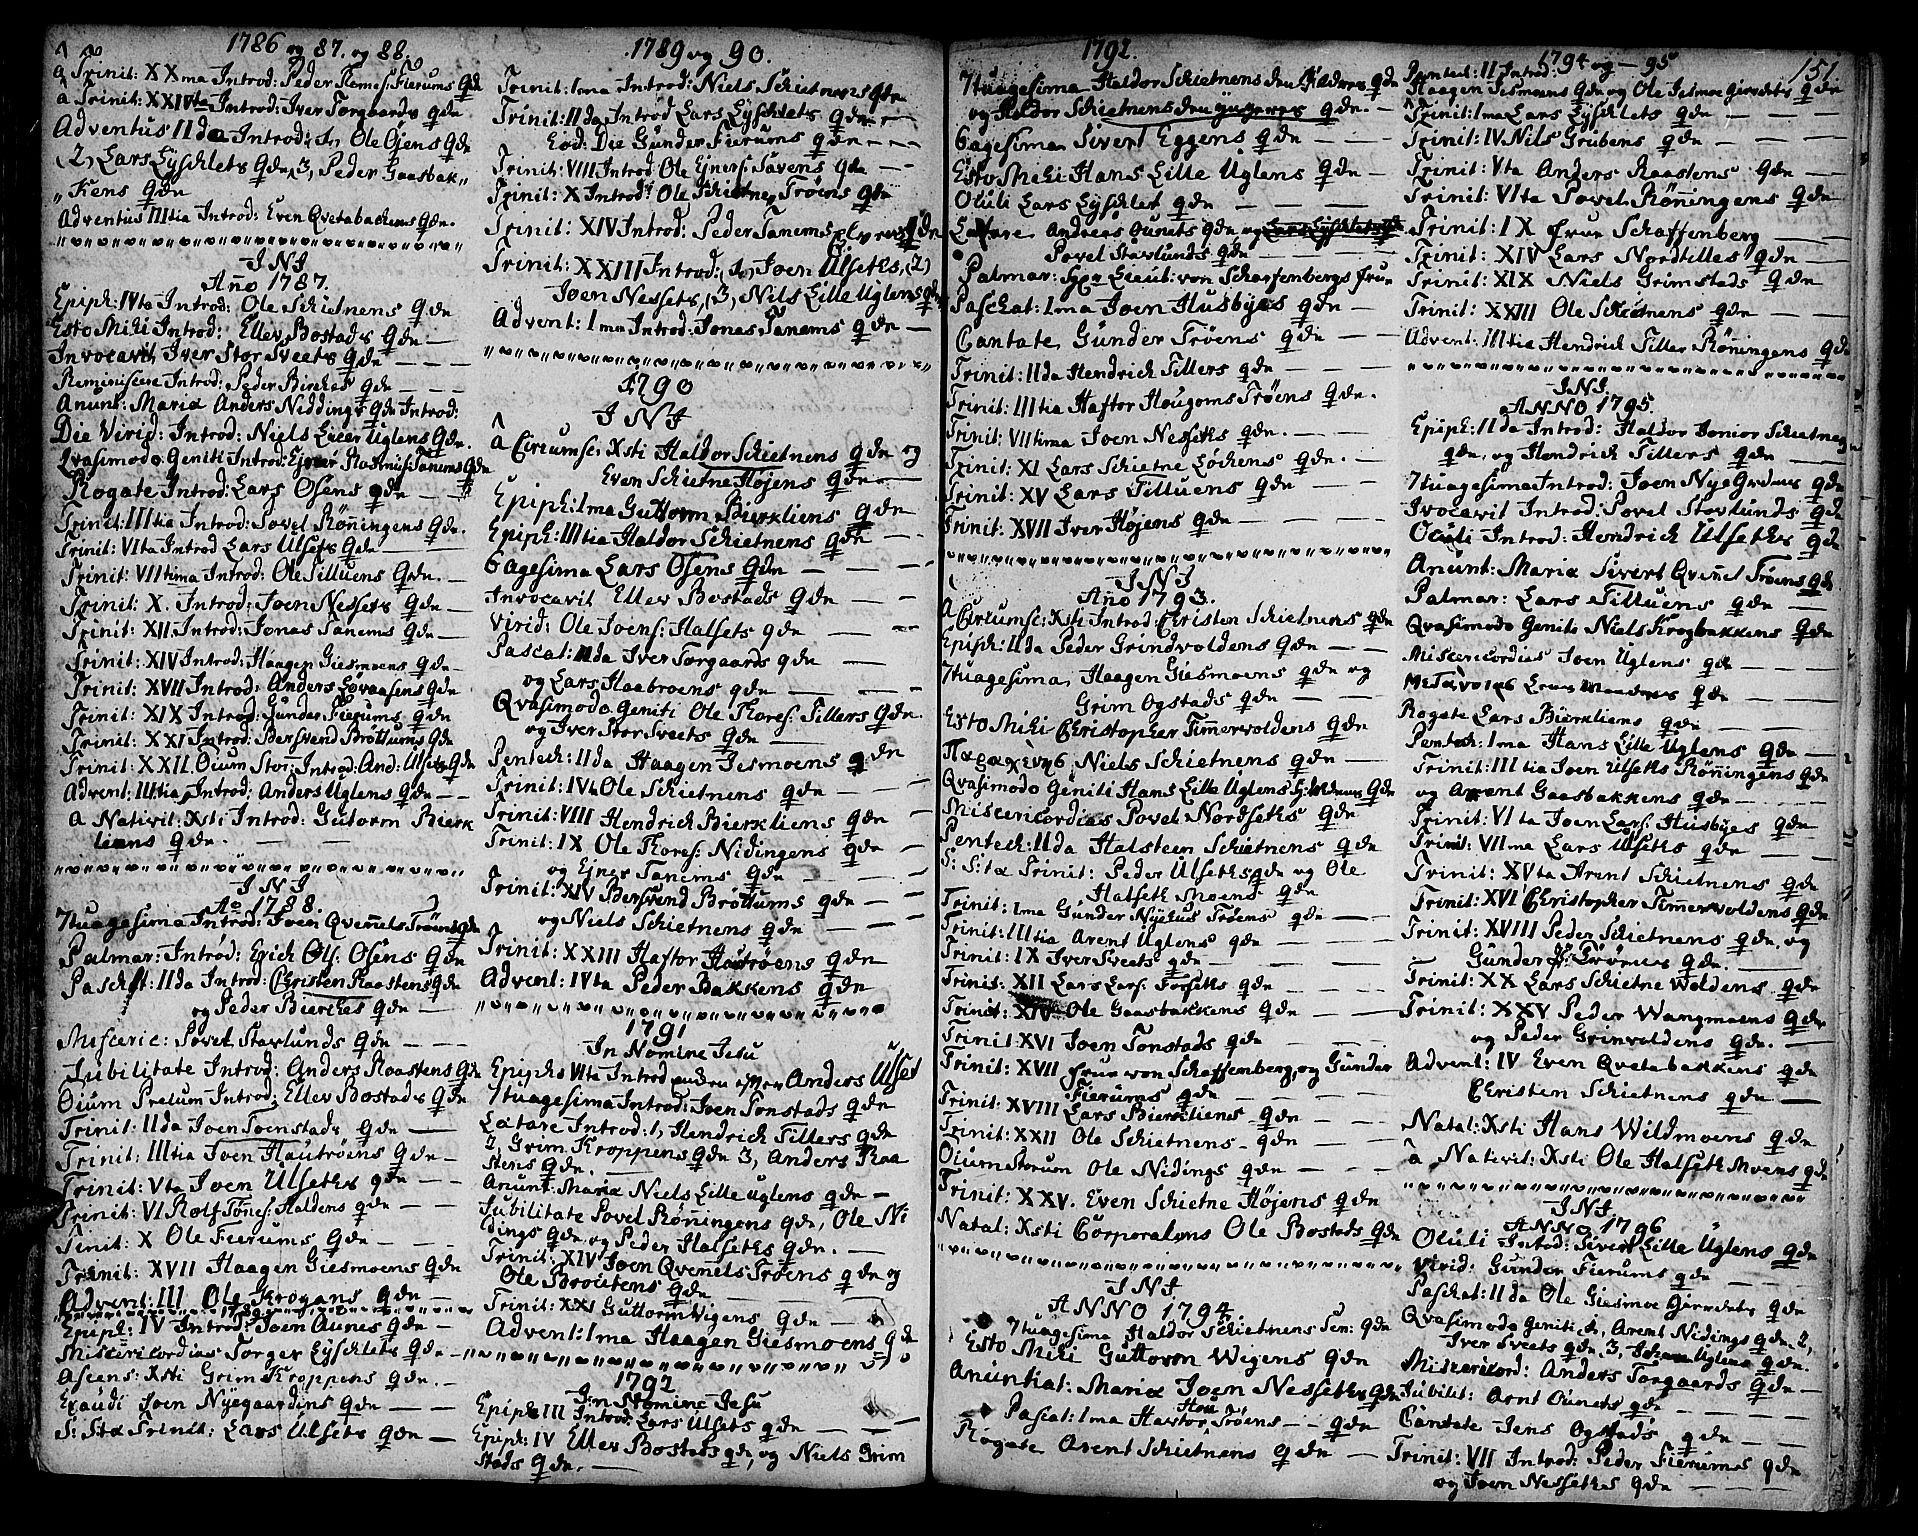 1786 og 87. og 88.
â Trinit: XXma Introd: Peder Fierums Qde
â Trinit: XXIVta Introd: Iver Torgaards Qde
Adventus IIda Introd: 1, Ole Osens Qde
(2) Lars Lyschlets Qde, 3, Peder Gaasbak„
„kens Qde
Adventus IIItia Introd: Even Qvetabackens Qde.
INJ
Año 1787.
Epiph: IVta Introd: Ole Schietnens Qde
Esto Mihi Introd: Ellev Bostads Qde
Invocavit Iver Stor Sveets Qde
Reminiscere Introd: Peder Birches Qde
Anunt: Mariæ Anders Niddings Qde Introd:
Die Virid: Introd: Niels Lille Uglens Qde.
Qvasimodo Geniti Introd: Ejner Rasmus: Tanems Qde
Rogate Introd: Lars Osens Qde
Trinit: IIItia Introd: Povel Röñingens Qde.
Trinit: VIta Introd Lars Ulsets Qde
Trinit: VIItima Introd: Ole Tilluens Qde.
Trinit: X. Introd: Joen Nessets Qde
Trinit: XII. Introd: Jonas Tanems Qde
Trinit: XIV Introd: Haagen Giesmoens Qde
Trinit: XVII Introd: Anders Løvaasens Qde
Trinit: XIX Introd: Gunder Fierums Qde
Trinit: XXI Introd: Bersvend Bröttums Qde
Trinit: XXII. Oium Stor: Introd: And: Ulsets Qde
Advent: IIItia Introd: Anders Uglens Qde
â Nativit: Xsti Introd: Gutorm Bierk
liens Qde.
INJ
Aº 1788.
7tuagesima Introd: Joen Qveñels Trøens Qde
Palmar: Introd: Erich Ols: Osens Qde
Paschat: IIda Introd: Christen Raastens Qde
og Peder Bierches Qde
Miseric: Povel Stavlunds Qde
Jubilitate Introd: Anders Raastens Qde
Oium Prelum Introd: Ellev Bostads Qde
Trinit: IIda Joen Toenstads Qde
Trinit: IIItia Joen Hautröens Qde
Trinit: Vta Joen Ulseths Qde
Trinit: VI Rolf Tönes: Haldens Qde
Tinit: X Ole Fierums Qde
Trinit: XVII Haagen Giesmoens Qde
Advent: III Ole Krogans Qde
1789
Epiph: IV Introd: Joen Aunes Qde
Misericordias Torger Lyschlets Qde
Ascens: Xsti Grim Kroppens Qde.
Exaudi Joen Nÿegaardins Qde
S: Stæ Trinit: Lars Ulsets Qde
1789 og 90.
Trinit: Ima Introd: Niels Schietnens Qde
Trinit: IIda Introd Lars Lyschlets Qde
Eod: Die Gunder Fierums Qde
Trinit: VIII Introd: Ole Ejners: Tavens Qde
Trinit: X Introd: Ole Schietne Trøens Qde
Trinit: XIV Introd: Peder Tanems Qde
Trinit: XXIII Introd: (1,) Joen Ulseths, (2)
Joen Nessets, (3, Nils Lille Uglens Qde
Advent: Ima Introd: Jonas Tanems Qde
1790
INJ
â Circumsc: Xsti Haldor Schietnens Qde og
Even Schietne Højens Qde
Epiph: Ima Guttorm Bierkliens Qde
Epiph: IIItia Haldor Schietnens Qde
6agesima Lars Osens Qde
Invocavit Ellev Bostads Qde
Virid: Ole Joens: Halsets Qde
Pascat: IIda Iver Torgaards Qde
og Lars Haabroens Qde
Qvasimodo Geniti Ole Thores: Tillers Qde.
og Iver Stor Sveets Qde
Pentech: IIda Haagen Jesmoens Qde
Trinit: IVta Ole Schietnens Qde
Trinit: VIII Hendrich Bierkliens Qde
Trinit: IX Ole Thores: Nidingens Qde
og Ejner Tanems Qde
Trinit: XIV Bersvend Bröttums Qde
og Niels Schietnens Qde
Trinit: XXIII Haftor Hautrøens Qde
Advent: IVta Peder Bakkens Qde
1791
In Nomine Jesu
Epiph: VIta Introd Anders Ulset
7tuagesima Introd: Joen Tonstads Qde
Lætare Introd: 1, Hendrich Tillers Qde
2, Grim Kroppens Qde 3, Anders Raa
stens Qde.
Anunt: Mariæ Niels Lille Uglens Qde
Jubilitate Povel Röñingens Qde, Ole Ni
dings Qde og Peder Halseths Qde.
Trinit: XIV Joen Qveñels Trøens Qde og
Ole Broutens Qde
Trinit: XXI Guttorm Wigens Qde
Advent: Ima Haagen Giesmoens Qde
1792
In Nomine Jesu
Epiph III Introd: Lars Ulsets Qde
Epiph: IV Ellev Bostads Qde, og Niels Grim
stads Qde.
1792.
7tuagesima Haldor Schietnens den Ældres Qde
og Haldor Schietnens den yngeres Qde.
6agesima Sivert Eggens Qde
Esto Mihi Hans Lille Uglens Qde
Oculi Lars Lyschlet Qde
Lætare Andreas Ounets Qde og Lars Lyschlets Qde
Povel Stavlunds Qde
Palmar: Hr Lieut: von Schaffenbergs frue
Paschat: Ima Joen Husbyes Qde
Cantate, Gunder Trøens Qde
Trinit: IIda Hendrich Tillers Qde
Trinit: IIItia Haftor Hougoms Trøens Qde.
Trinit: VIItima Joen Nesseths Qde.
Trinit: XI Lars Schietne Løchens Qde.
Trinit: XV Lars Tilluens Qde
Trinit: XVII Iver Højens Qde
INJ
Año 1793.
â Circumsc: Xsti Introd: Christen Schietnens Qde
Epiph: IIda Peder Grindvoldens Qde
7tuagesima, Haagen Giesmoens Qde og
Grim Ogstads Qde
Esto Mihi Christopher Timmervoldens Qde
Παραχευης Niels Schietnens Qde
Qvasimodo Geniti Hans Lille Uglens Qde
Misericordias Povel Nordseths Qde
Pentech: IIda Halsteen Schietnens Qde
S: Stæ Trinit: Peder Ulseths Qde og Ole
Halseth Moens Qde
Trinit: Ima Gunder Nyhus Trøens Qde
Trinit: IIItia Arent Uglens Qde
Trinit: IX Iver Sveets Qde
Trinit: XII Lars Lars: Forseths Qde
Trinit: XIV Ole Gaasbakkens Qde
Trinit: XVI Joen Tonstads Qde
Trinit: XVII frue von Schaffenberg, og Gunder
Fierums Qde
Trinit: XVIII Lars Bierkliens Qde
Trinit: XXII Ole Schietnens Qde
Oium Storum Ole Nidings Qde
Trinit: XXV. Even Schietne Højens Qde
Natal: Xsti Corporalens Ole Bostads Qde
INJ
ANNO 1794
7tuagesima Haldor Schietnens Sen: Qde
Esto Mihi Guttorm Wigens Qde
Anuntiat: Mariæ Joen Nesseths Qde
Pascat: Ima Haftor Hou Trøens Qde
Rogate Arent Schietnens Qde
1794 og 95
151.
Pentech: II Introd:
Haagen Jesmoens Qde og Ole Jesmoe Gierdets Qde
Trinit: Ima Lars Lyschlets Qde
Trinit: IV Nils Grubens Qde
Trinit: Vta Anders Raastens Qde
Trinit: VIta Povel Röñingens Qde
Trinit: IX frue Schaffenberg
Trinit: XIV Lars Nordtilles Qde
Trinit: XIX Niels Grimstads Qde
Trinit: XXIII Ole Schietnens Qde
Advent: IIItia Hendrich Tiller Röñingens Qde
INJ.
ANNO 1795.
Epiph: IIda Introd: Haldor Junior Schietnens
Qde, og Hendrich Tillers Qde
7tuagesima Introd: Joen Nye Qde
Ivocavit Introd: Povel Stavlunds Qde
Oculi Introd: Hendrich Ulseths Qde
Anunt: Mariæ Sivert Qveñel Trøens Qde
Palmar: Lars Tilluens Qde
Qvasimodo Geniti Niels Krogbakkens Qde
Misericordias Joen Uglens Qde
Μετανοιας Qde
Rogate Lars Bierkliens Qde
Pentech: Ima Hans Lille Uglens Qde
Trinit: IIItia Joen Ulseths Röñingens Qde
og Arent Gaasbakkens Qde
Trinit: VIta Joen Lars: Husbyes Qde
Trinit: VIIme Lars Ulseths Qde
Trinit: XVta Arent Schietnens Qde
Trinit: XVI Christopher Timmervoldens Qde
Trinit: XVIII Peder Schietnens Qde, og
Gunder Trönes Qde.
Trinit: XX Lars Schietne Woldens Qde
Trinit: XXV Peder Wangmoens Qde
og Peder Grinvoldens Qde.
Advent: IV Even Qvetabakkens Qde
Christen Schietnens Qde
Natal: Xsti Hans Wildmoens Qde
â Nativit: Xsti Ole Halseth Moens Qde
INJ
ANNO 1796
Oculi Introd: Sivert Lille Uglens Qde
Virid: Gunder Fierums Qde
Paschat: IIda Ole Giesmoe Gierdets Qde
Qvasimodo Geniti 1, Arent Nidings Qde 2,
Iver Sveets Qde. 3, Johan Uglens Qde.
Misericord: Anders Torgaards Qde
Jubilit: Arnt Ounets Qde
Cantate Jens Ogstads Qde
Trinit: VII Introd: Peder Fierumes Qde
og Joen Nesseths Qde